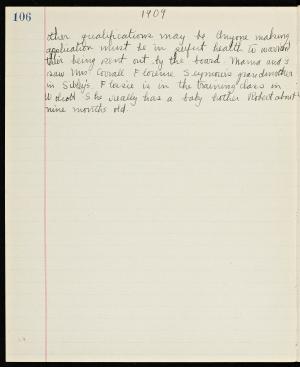 106
1909
other qualifications may be Anyone making
application must be in perfect health to warrant
their being sent out by the board. Mama and I
saw Mrs Corrall Florence Seymour's grandmother
in Sibley's. Florence is in the training class in
She really has a baby brother Robert about
nine months old.